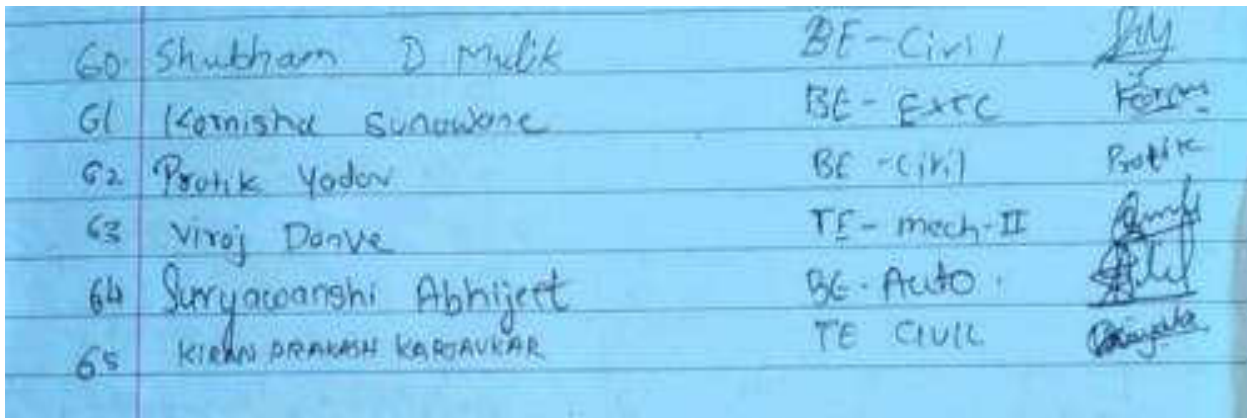 60. Shubham D Mulik BE - Civil
61 Karnisha Sunawane BE - EXTC
62 Pratik Yadav BE - Civil Pratik
63 Viraj Danve TE - mech - II
64 Suryawanshi Abhijeet BE - Auto.
65 KIRAN PRAKASH KARJAVKAR TE CIVIL